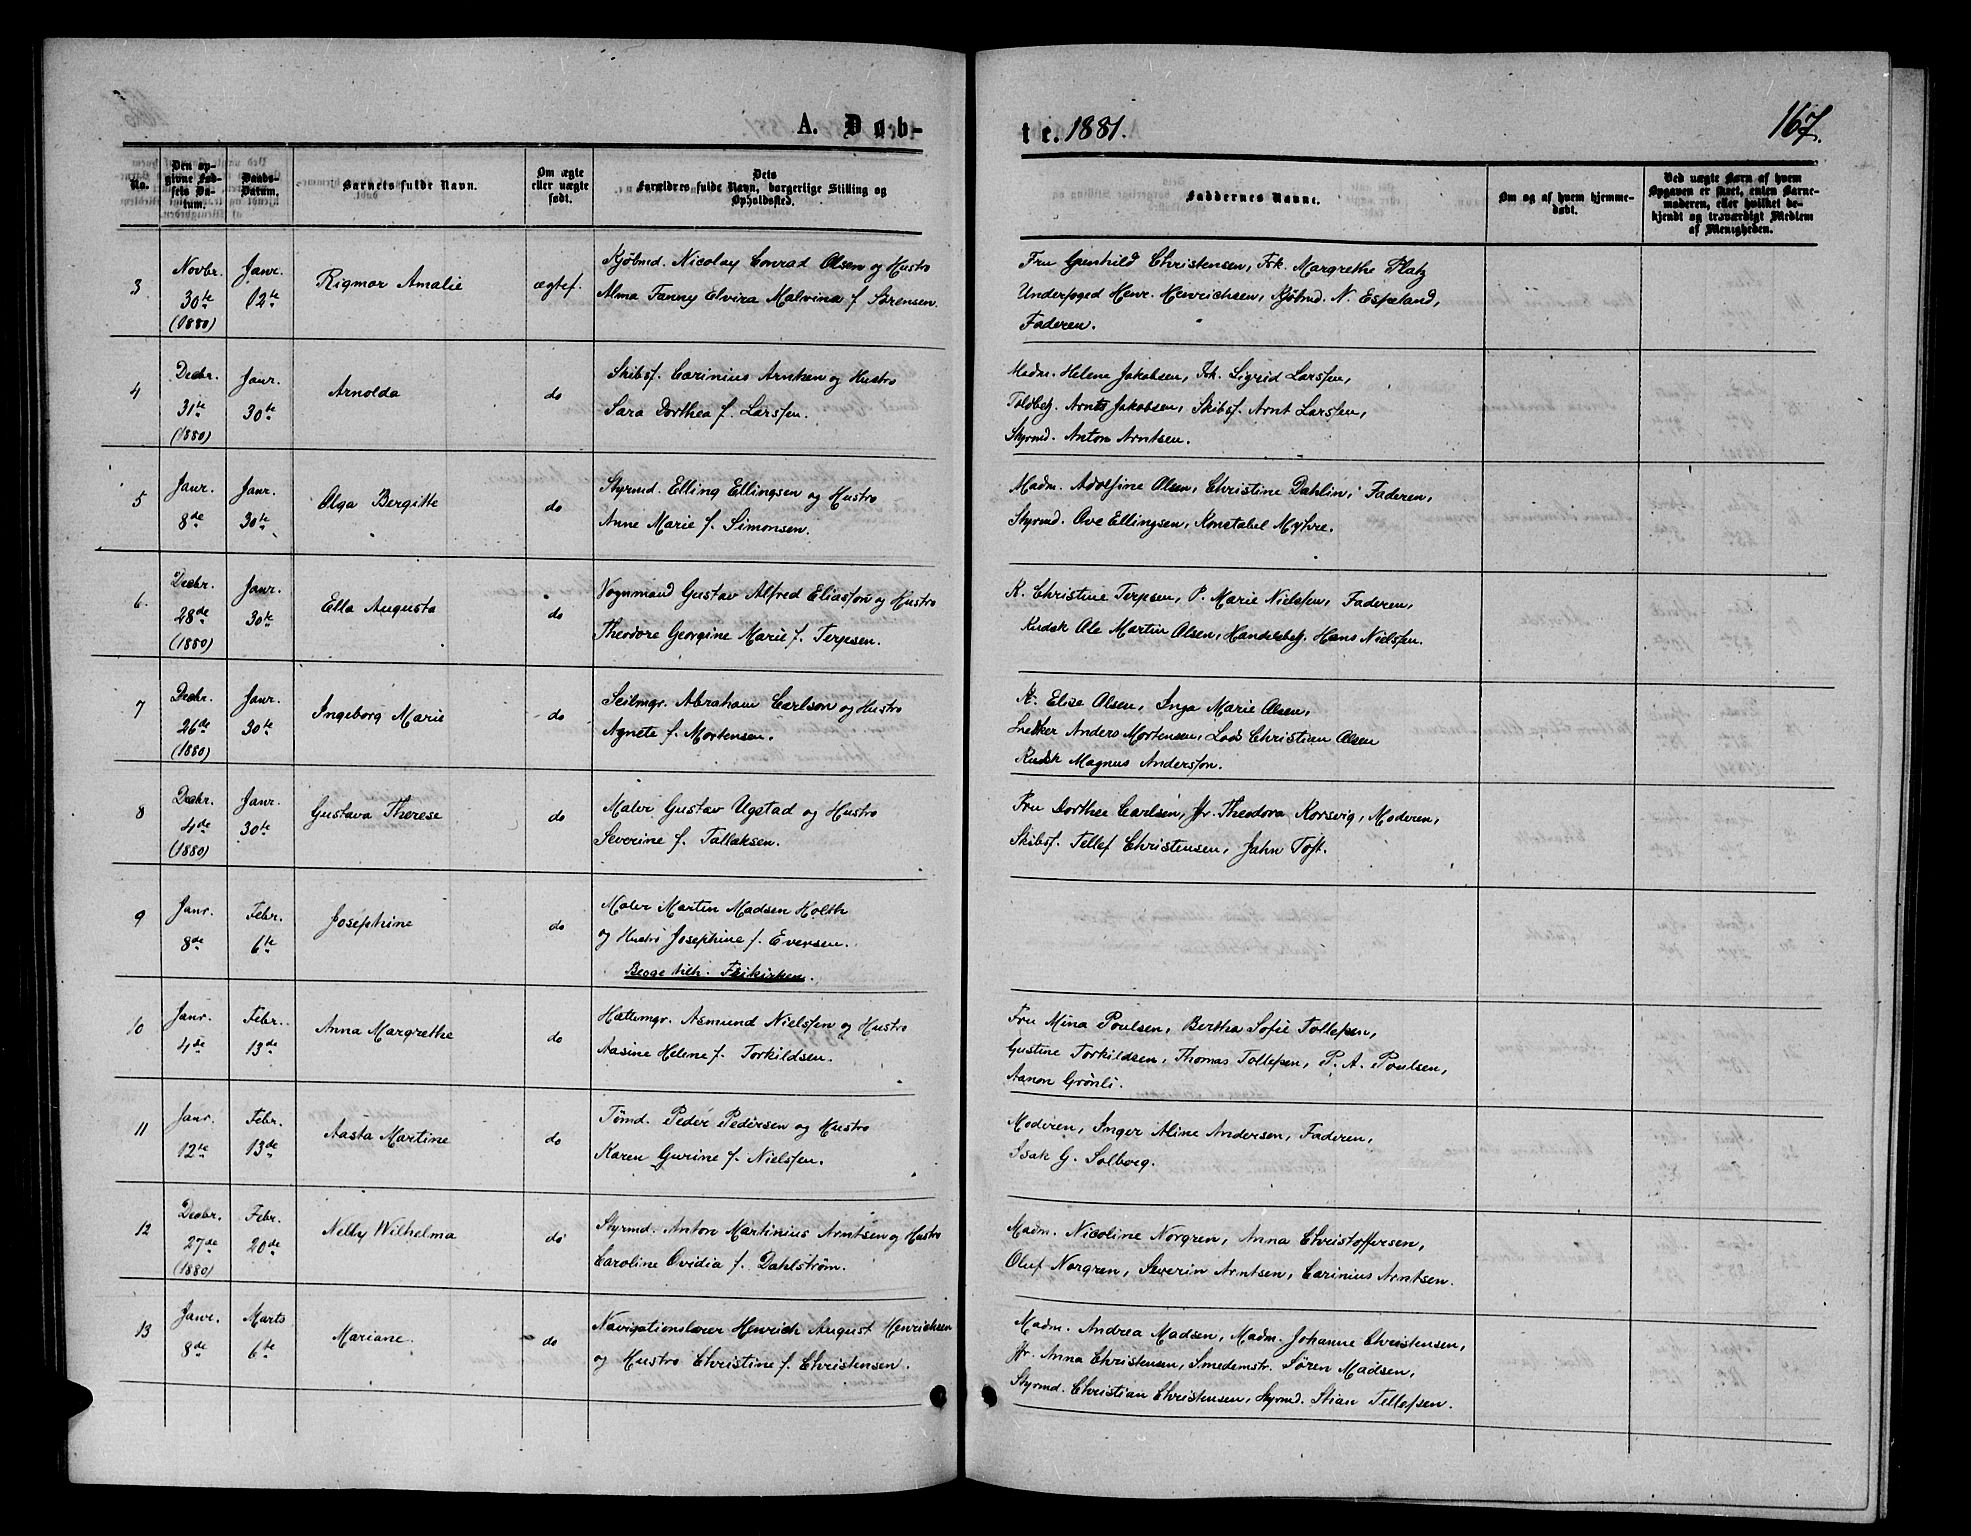 A. Døb-
te. 1881.
167.
No.
Den op-
givne Fød-
sels Da-
tum.
Daabs-
Datum.
Barnets fulde Navn.
Om ægte
eller uægte
født.
Dets
Forældres fulde Navn, borgerlige Stilling og
Opholdssted.
Faddernes Navne.
Om og af hvem hjemme-
døbt.
Ved uægte Børn af hvem
Opgaven er skeet, enten Barne-
moderen, eller hvilket be-
kjendt og troværdigt Medlem
af Menigheden.
3
Novbr.
30te
(1880)
Janr.
12te
Rigmor Amalie
ægtef.
Kjøbmd. Nicolay Conrad Olsen og Hustro
Alma Fanny Elvira Malvina f. Sørensen.
Fru Gunhild Christensen, Frk. Margrethe Platz
Underfoged Henr. Henrichsen, Kjøbmd. N. Espeland,
Faderen.
4
Decbr.
31te
(1880)
Janr.
30te
Arnolda
do
Skibsf. Carinius Arntsen og Hustro
Sara Dorthea f. Larssen.
Madm. Helene Jakobsen, Frk. Sigrid Larssen,
Toldbetj. Arnts Jakobsen, Skibsf. Arnt Larssen,
Styrmd. Anton Arntsen.
5
Janr.
8de
Janr.
30te
Olga Bergitte
do
Styrmd. Elling Ellingsen og Hustro
Anne Marie f. Simonsen.
Madm. Adolfine Olsen, Christine Dahlin, Faderen,
Styrmd. Ove Ellingsen, Konstabel Myhre.
6.
Decbr.
28de
(1880)
Janr.
30te
Ella Augusta
do
Vognmand Gustav Alfred Eliasson og Hustro
Theodore Georgine Marie f. Terpesen.
K. Christine Terpsen, P. Marie Nielssen, Faderen,
Kudsk Ole Martin Olsen, Handelsbetj. Hans Nielssen.
7
Decbr.
26de
(1880)
Janr.
30te
Ingeborg Marie
do
Seilmgr. Abraham Carlson og Hustro
Agnete f. Mortensen.
Elise Olsen, Inga Marie Olsen,
Snedker Anders Mortensen, Lods Christian Olsen
Kudsk Magnus Andersson.
8
Decbr.
4de
(1880)
Janr.
30te
Gustava Therese
do
Maler Gustav Ugstad og Hustro
Severine f. Tallaksen.
Fru Dorthee Carlsen, Jfr. Theodora Korsvig, Moderen,
Skibsf. Tellef Christensen, Jahn Toft.
9
Janr.
8de
Febr.
6te
Josephine
do
Maler Martin Madsen Holth
og Hustro Josephine f. Eversen.
Begge tilh. Frikirken.
10
Janr.
4de
Febr.
13de
Anna Margrethe
do
Hattemgr. Asmund Nielssen og Hustro
Aasine Helene f. Torkildsen.
Fru Mina Poulsen, Bertha Sofie Tollefsen,
Gustine Torkildsen, Thomas Tollefsen, P. A. Poulsen,
Aanon Grønli.
11
Janr.
12te
Febr.
13de
Aasta Martine
do
Tømd. Peder Pedersen og Hustro
Karen Gurine f. Nielssen.
Moderen, Inger Aline Andersen, Faderen,
Isak G. Solborg.
12
Decbr.
27de
(1880)
Febr.
20de
Nelly Wilhelma
do
Styrmd. Anton Martinius Arntsen og Hustro
Caroline Ovidia f. Dahlstrøm.
Madm. Nicoline Norgren, Anna Christoffersen,
Oluf Norgren, Severin Arntsen, Carinius Arntsen.
13
Janr.
8de
Marts
6te
Mariane.
do
Navigationslærer Henrich August Henrichsen
og Hustro Christine f. Christensen.
Madm. Andrea Madsen, Madm. Johanne Christensen,
Jfr. Anna Christensen, Smedemstr. Søren Madsen,
Styrmd. Christian Christensen, Styrmd. Stian Tellefsen.